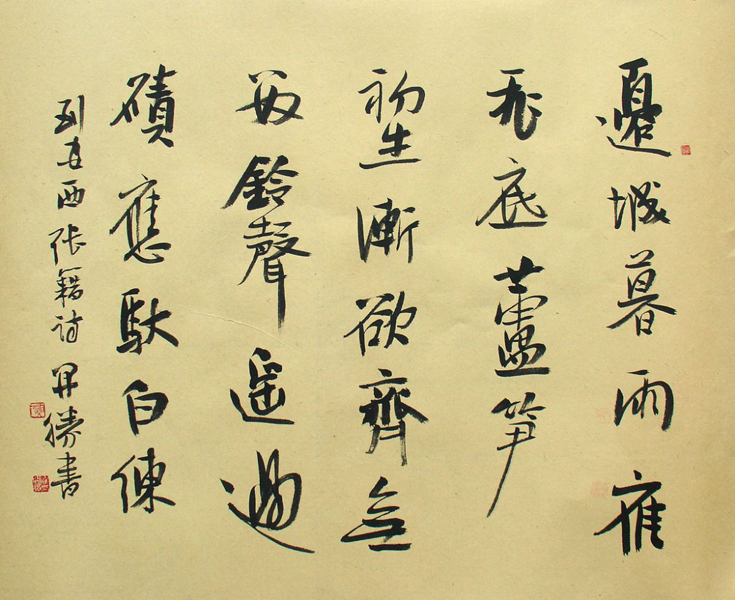 邊城暮雨雁
飛底蘆笋
初生漸欲齊無
数鈴聲遥過
磧應馱白練
到安西 張籍詩 昇勝書